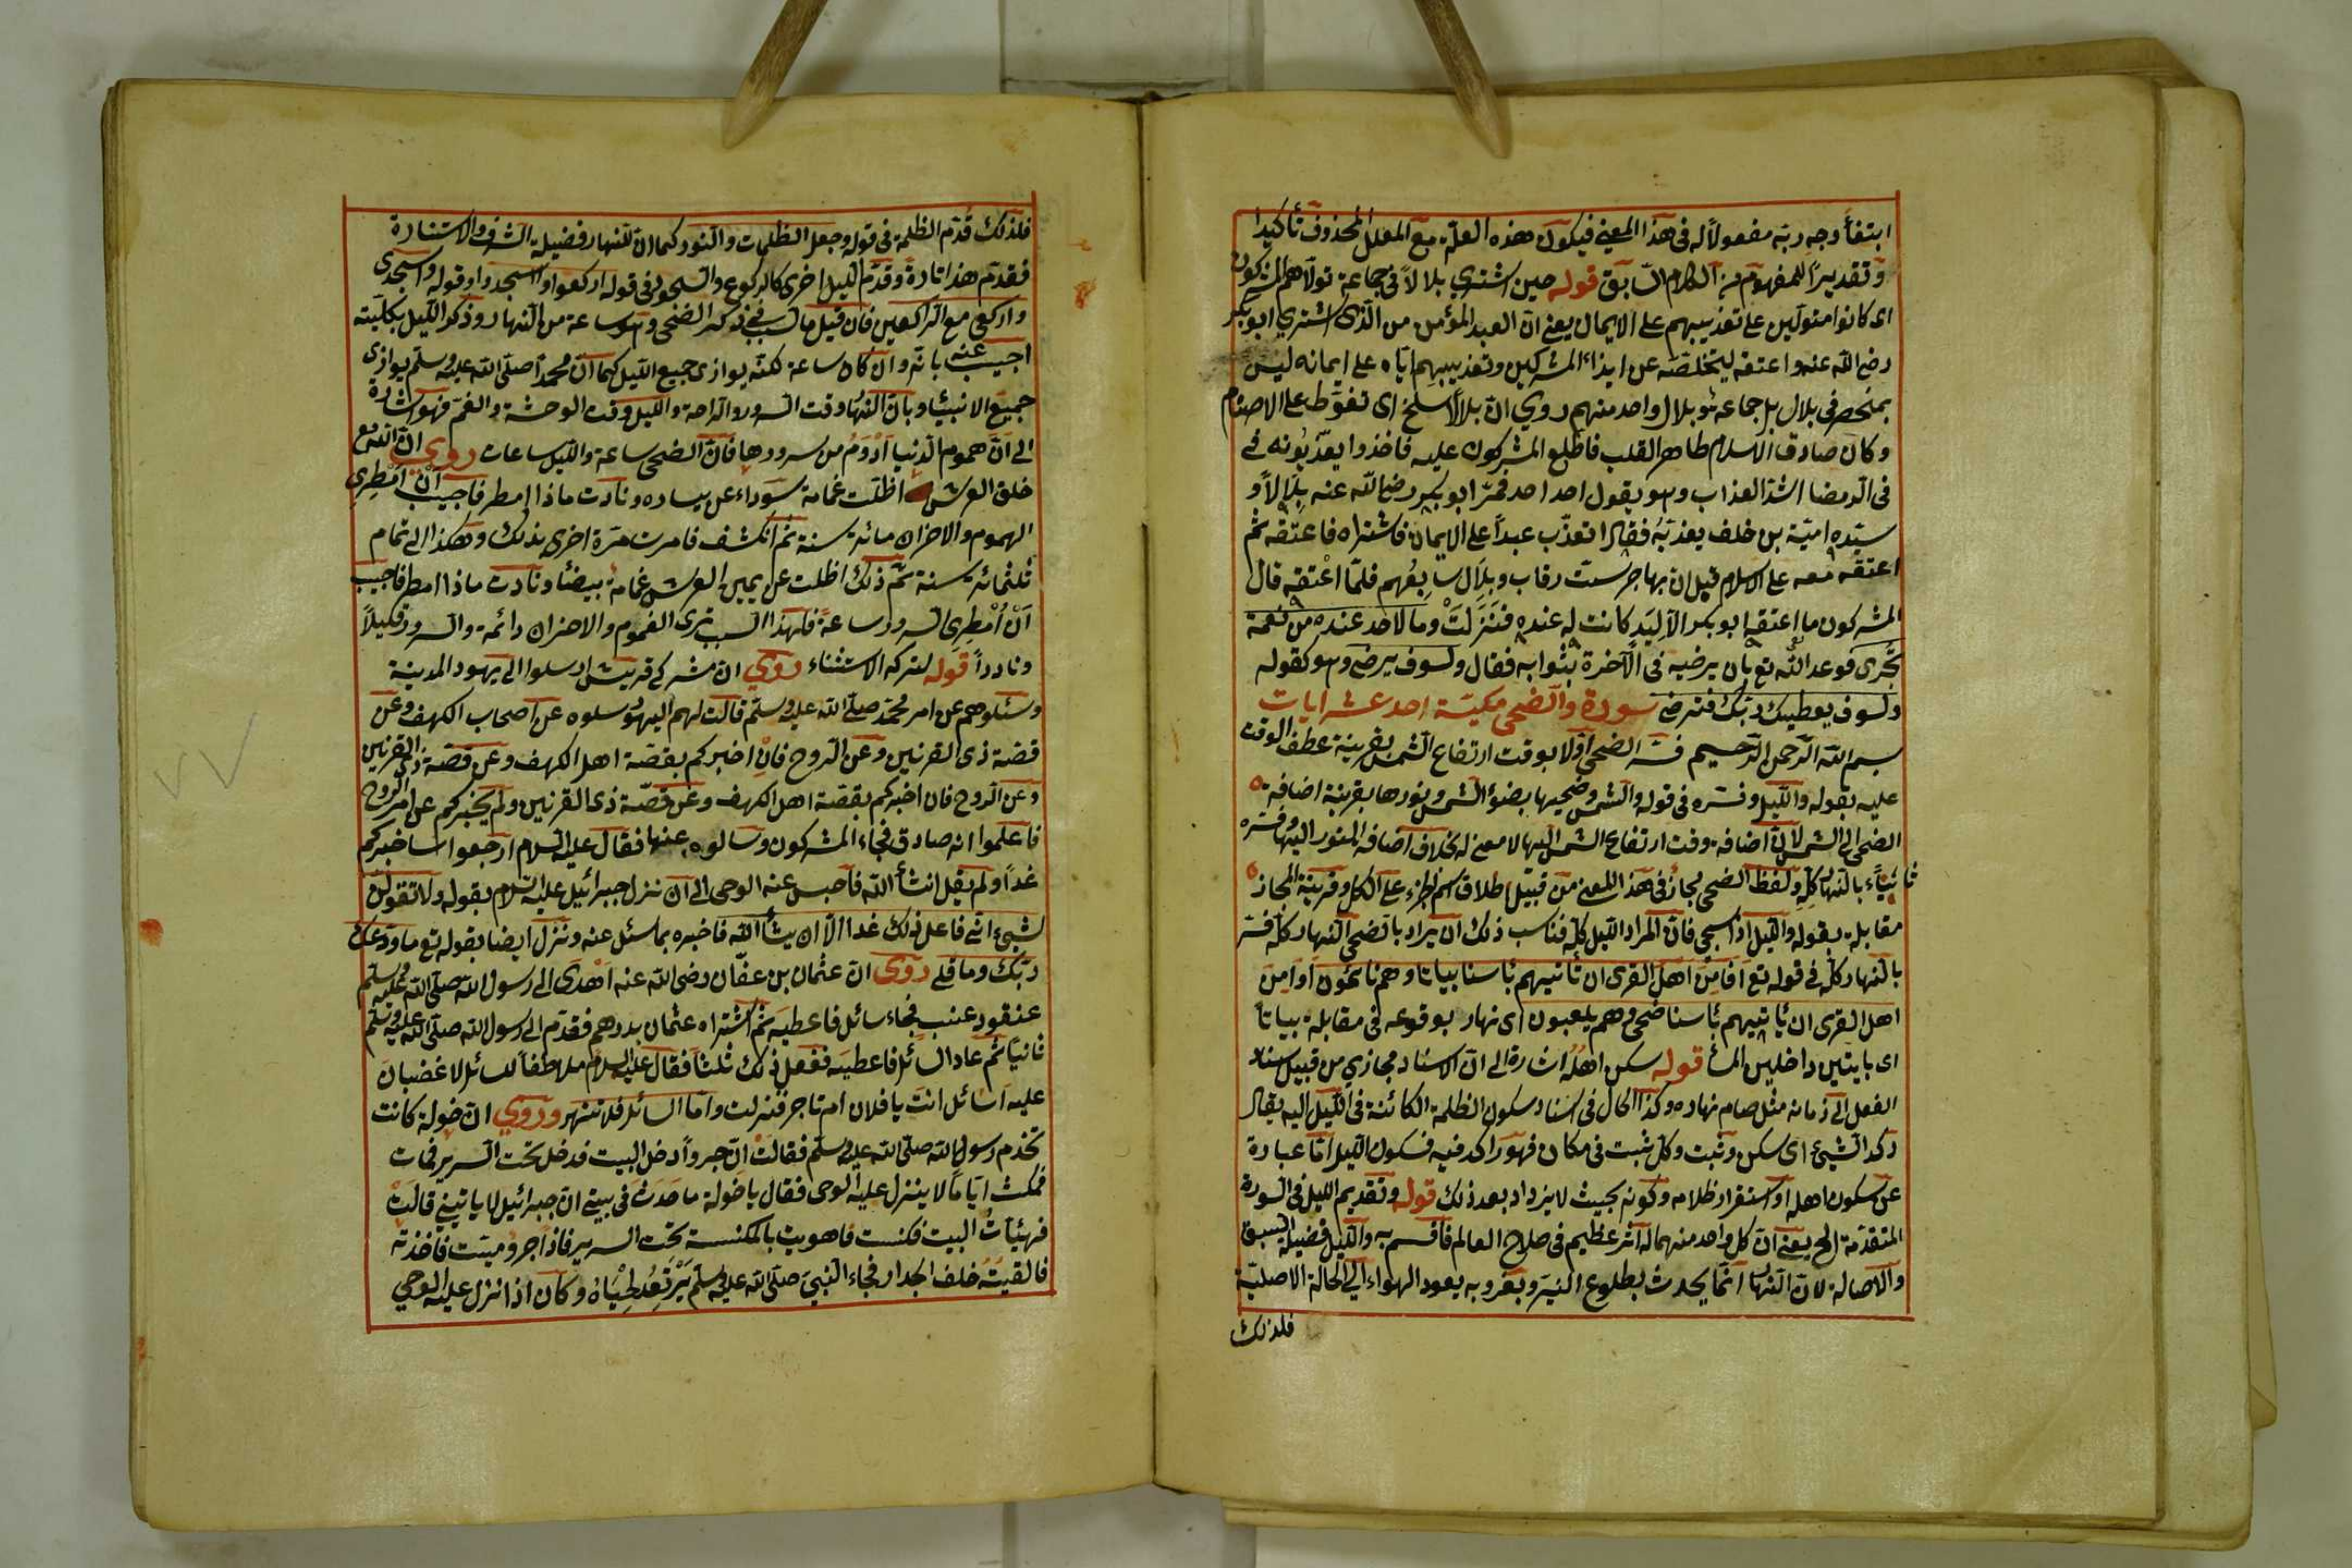 ابتغاء وجه ربه مفعولا له فى هذا المعنى فيكون هذه العلة مع المعلل المحذوف تأكيدا
وتقديرا للمفهوم من الكلام السابق قوله حين اشترى بلالا فى جماعة تولاهم المشركون
اى كانوا متولين على تعذيبهم على الايمان يعنى ان العبد المؤمن من الذى اشترى ابو بكر
رضى الله عنه واعتقه ليتخلصه عن ايذاء المشركين وتعذيبهم اياه على ايمانه ليس
بمنحصر فى بلال بل جماعة بلال واحد منهم روي ان بلالا سلخ اى تغوّط على الاصنام
وكان صادق الاسلام طاهر القلب فاطلع المشركون عليه فاخذوا يعذّبونه فى
فى الرمضا اشد العذاب وهو يقول احد احد فمرّ ابو بكر رضى الله عنه بلالا و
سيّده اميّة بن خلف يعذبه فقال اتعذّب عبداً على الايمان فاشتراه فاعتقه ثم
اعتقه معه على الاسلام قبل ان يهاجر ستّ رقاب وبلال سابعهم فلمّا اعتقه قال
المشركون ما اعتقه ابو بكر الا ليد كانت له عنده فنزلت وما لاحد عنده من نعمة
تجزى فوعد الله تع بان يرضيه فى الآخرة بثوابه فقال ولسوف يرضى وهو كقوله
ولسوف يعطيك ربّك فترضى سورة والضحى مكيّة احد عشر ايات
بسم الله الرحمن الرحيم فسّر الضحى اوّلا بوقت ارتفاع الشمس بقرينة عطف الوقت
عليه بقوله والليل وفسّره فى قوله والشمس وضحيها بضوء الشمس ونورها بقرينة اضافة
الضحى الى الشمس لان اضافة وقت ارتفاع الشمس اليها لا معنى له بخلاف اضافة النور اليها وفسّره
ثانيا بالنهار كلّه ولفظ الضحى مجاز فى هذا المعنى من قبيل اطلاق اسم الجزء على الكل وقرينة المجاز
مقابلة بقوله والليل اذا سجى فان المراد الليل كلّه فناسب ذلك ان يراد بالضحى النهار كلّه فسّر
بالنهار كلّه فى قوله تع افامن اهل القرى ان تأتيهم بأسنا بياتا وهم نائمون اوامن
اهل القرى ان يأتيهم بأسنا ضحى وهم يلعبون اى نهار بوقوعه فى مقابلة بياتاً
اى بايتين داخلين المسا قوله سكن اهله اشارة الى ان الاسناد مجازي من قبيل اسناد
الفعل الى زمانه مثل صام نهاره وكذا الحال فى اسناد سكون الظلمة الكائنة فى الليل اليه يقال
ركد الشيئ اى سكن وثبت وكل ثبت فى مكان فهو راكد فيه فسكون الليل امّا عبارة
عن سكون اهله او استقرار ظلامه وكونه بحيث لا يزداد بعد ذلك قوله وتقديم الليل فى السورة
المتقدّمة الخ يعنى ان كل واحد منهما له اثر عظيم فى صلاح العالم فاقسم به والليل فضيلة السبق
والاصالة لان النهار انّما يحدث بطلوع النيّر وبغروبه يعود الهواء الى الحالة الاصليّة
فلذلك
فلذلك قدّم الظلمة فى قوله وجعل الظلمات والنور كما ان للنهار فضيلة الشرف والاستنارة
فقدّم هذا تارة وقدّم الليل اخرى كالركوع والسجود فى قوله اركعوا واسجدوا وقوله واسجدى
واركعى مع الراكعين فان قيل ما السبب فى ذكر الضحى وهو ساعة من النهار وذكر الليل بكليّته
اجيب عنه بانّه وان كان ساعة لكنّه يوازى جميع الليل كما ان محمداً صلّى الله عليه وسلّم يوازى
جميع الانبيا وبان النهار وقت السرور والراحة والليل وقت الوحشة والغمّ فهو اشارة
الى ان هموم الدنيا ادوم من سرورها فان الضحى ساعة والليل ساعات روي ان الله تع
خلق العرش اظلّت غمامة سوداء عن يساره ونادت ماذا امطر فاجيب ان امطرى
الهموم والاحزان مائة سنة ثم انكشف فامرت مرّة اخرى بذلك وهكذا الى تمام
ثلثمائة سنة ثم ذلك اظلت عن يمين العرش غمامة بيضا ونادت ماذا امطر فاجيب
ان امطرى السرور ساعة فلهذا السبب ترى الغموم والاحزان دائمة والسرور قليلاً
ونادراً قوله لتركه الاستثناء روي ان مشركى قريش ارسلوا الى يهود المدينة
وسئلوهم عن امر محمّد صلّى الله عليه وسلّم قالت لهم اليهود سلوه عن اصحاب الكهف وعن
قصّة ذى القرنين وعن الروح فان اخبركم بقصّة اهل الكهف وعن قصّة ذى القرنين
وعن الروح فان اخبركم بقصّة اهل الكهف وعن قصّة ذى القرنين ولم يخبركم عن امر الروح
فاعلموا انه صادق فجاء المشركون وسالوه عنها فقال عليه السلام ارجعوا ساخبركم
غداً ولم يقل انشأ الله فاحبس عنه الوحى الى ان نزل جبرائيل عليه السلام بقوله ولا تقولن
لشيئ انى فاعل ذلك غدا الا ان يشأ الله فاخبره بما سئل عنه ونزل ايضا بقوله تع ما ودعك
ربّك وما قلى روى ان عثمان بن عفّان رضى الله عنه اهدى الى رسول الله صلّى الله عليه وسلّم
عنقود عنب فجاء سائل فاعطيه ثم اشتراه عثمان بدرهم فقدّم الى رسول الله صلّى الله عليه وسلّم
ثانياً ثم عاد السائل فاعطيه ففعل ذلك ثلثاً فقال عليه السلام ملاطفاً للسائل لا غضبان
عليه اسائل انت يا فلان ام تاجر فنزلت وامّا السائل فلا تنهر وروي ان خولة كانت
تخدم رسول الله صلّى الله عليه وسلّم فقالت ان جرواً دخل البيت فدخل تحت السرير فمات
فمكث ايّاماً لا ينزل عليه الوحى فقال يا خولة ما حدث فى بيتى ان جبرائيل لا ياتينى قالت
فهيّأت البيت فكنست فاهويت بالمكنسة تحت السرير فاذا جرو ميّت فاخذته
فالقيته خلف الجدار فجاء النبىّ صلّى الله عليه وسلّم يرتعد لحياه وكان اذا نزل عليه الوحي